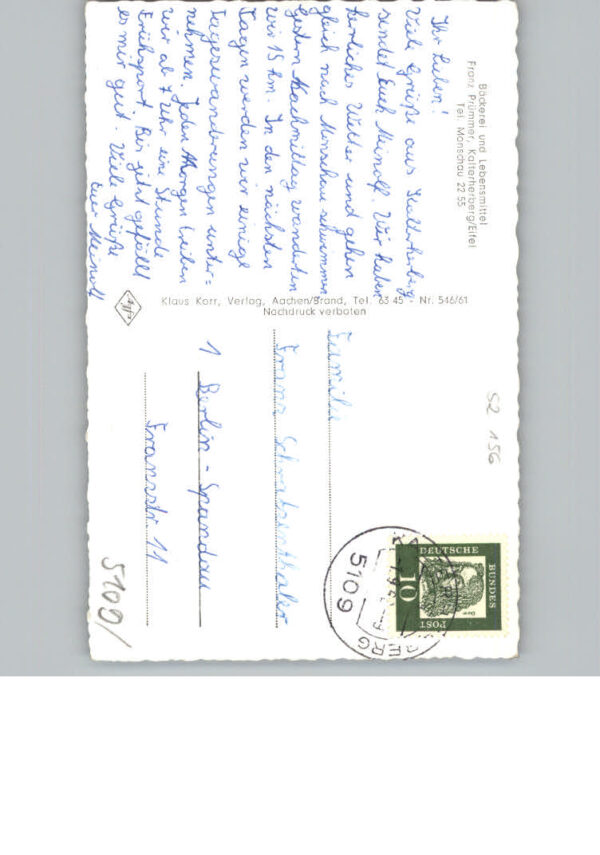 Bäckerei und Lebensmittel
Franz Prümmer, Kalterherberg/Eifel
Tel. Monschau 22 55
Ihr Lieben!
Viele Grüße aus Kalterherberg
sendet Euch Meinolf. Wir haben
herrliches Wetter und gehen
gleich nach Monschau schwimmen
Gestern Nachmittag wanderten
wir 15 km. In den nächsten
Tagen werden wir einige
Tageswanderungen unter=
nehmen. Jeden Morgen treiben
wir ab 7 Uhr eine Stunde
Frühsport. Bis jetzt gefällt
es mir gut. Viele Grüße
Eur Meinolf
Klaus Korr, Verlag, Aachen/Brand, Tel. 63 45 - Nr. 546/61
Nachdruck verboten
Agfa
Familie
Franz Schratzenthaler
1 Berlin-Spandau
Franzstr. 11
52 156
5109/
DEUTSCHE
BUNDES
POST
10
5109